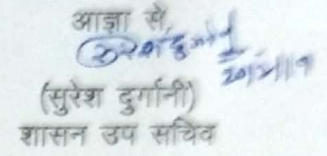 आज्ञा से,
(सुरेश दुर्गानी)
शासन उप सचिव